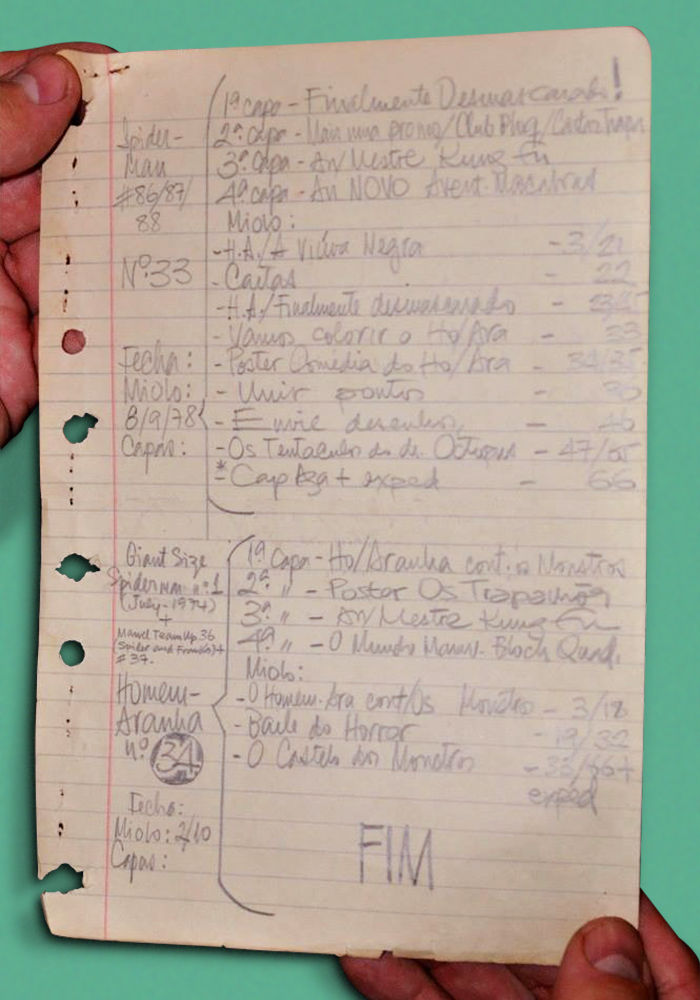 1ª capa - Finalmente Desmascarado!
Spider-Man #86/87/88
2ª Capa - Mais uma promo/Club Plug/
3ª Capa - An/Mestre Kung Fu
4ª capa - An NOVO Avent. Macabras
Miolo:
Nº 33
- H.A./A Viúva Negra - 3/21
- Cartas - 22
- H.A./Finalmente desmascarado -
- Vamos colorir o Ho/Ara - 33
Fecha:
- Poster Comédia do Ho/Ara - 34/35
Miolo:
- Unir pontos -
8/9/78
- Envie desenhos, - 46
Capas:
- Os Tentaculos do dr. Octopus - 47/65
* - Cap Aza + exped - 66
Giant Size
Spiderman nº 1
(July-1974)
+
Marvel Team Up 36
(Spider and Frank(s))+
#37.
1ª Capa - Ho/Aranha cont. os Monstros
2ª " - Poster Os Trapalhões
3ª " - An/Mestre Kung Fu
4ª " - O Mundo Maravi. Bloch Quad.
Miolo:
Homem-
Aranha
nº 34
- O Homem-Ara cont/Os Monstro - 3/18
- Baile do Horror - 19/32
- O Castelo dos Monstros - 33/66+
exped
Fecha:
Miolo: 2/10
Capas:
FIM